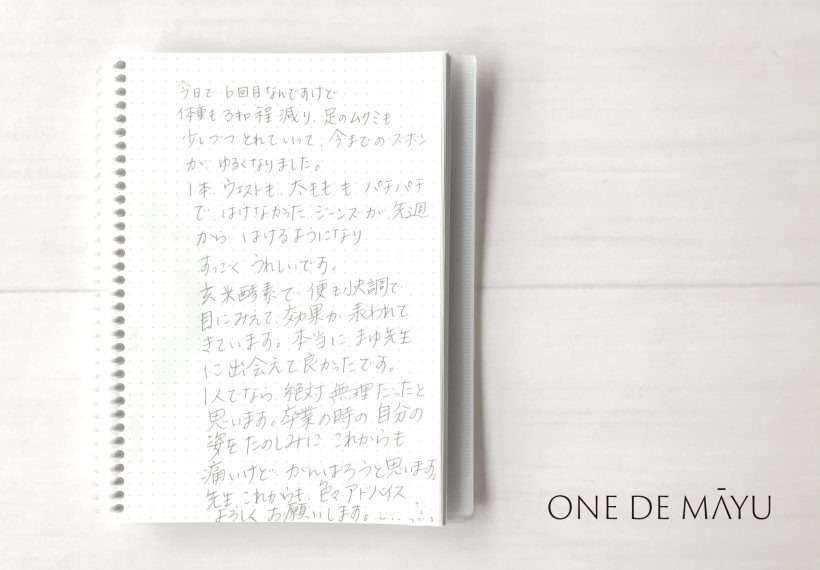 今日で6回目なんですけど
体重も3kg程減り、足のムクミも
少しづつとれていって、今までのズボン
が ゆるくなりました。
1本、ウエストも、太ももも、パチパチ
で、はけなかった、ジーンズが、先週
から はけるようになり
すっごく うれしいです。
玄米酵素で、便も快調で
目にみえて、効果が、表われて
きています。本当に まゆ先生
に出会えて良かったです。
1人でなら、絶対 無理だったと
思います。卒業の時の自分の
姿をたのしみに、これからも
痛いけど、がんばろうと思います。
先生、これからも、色々アドバイス
よろしくお願いします。
ONE DE MĀYU